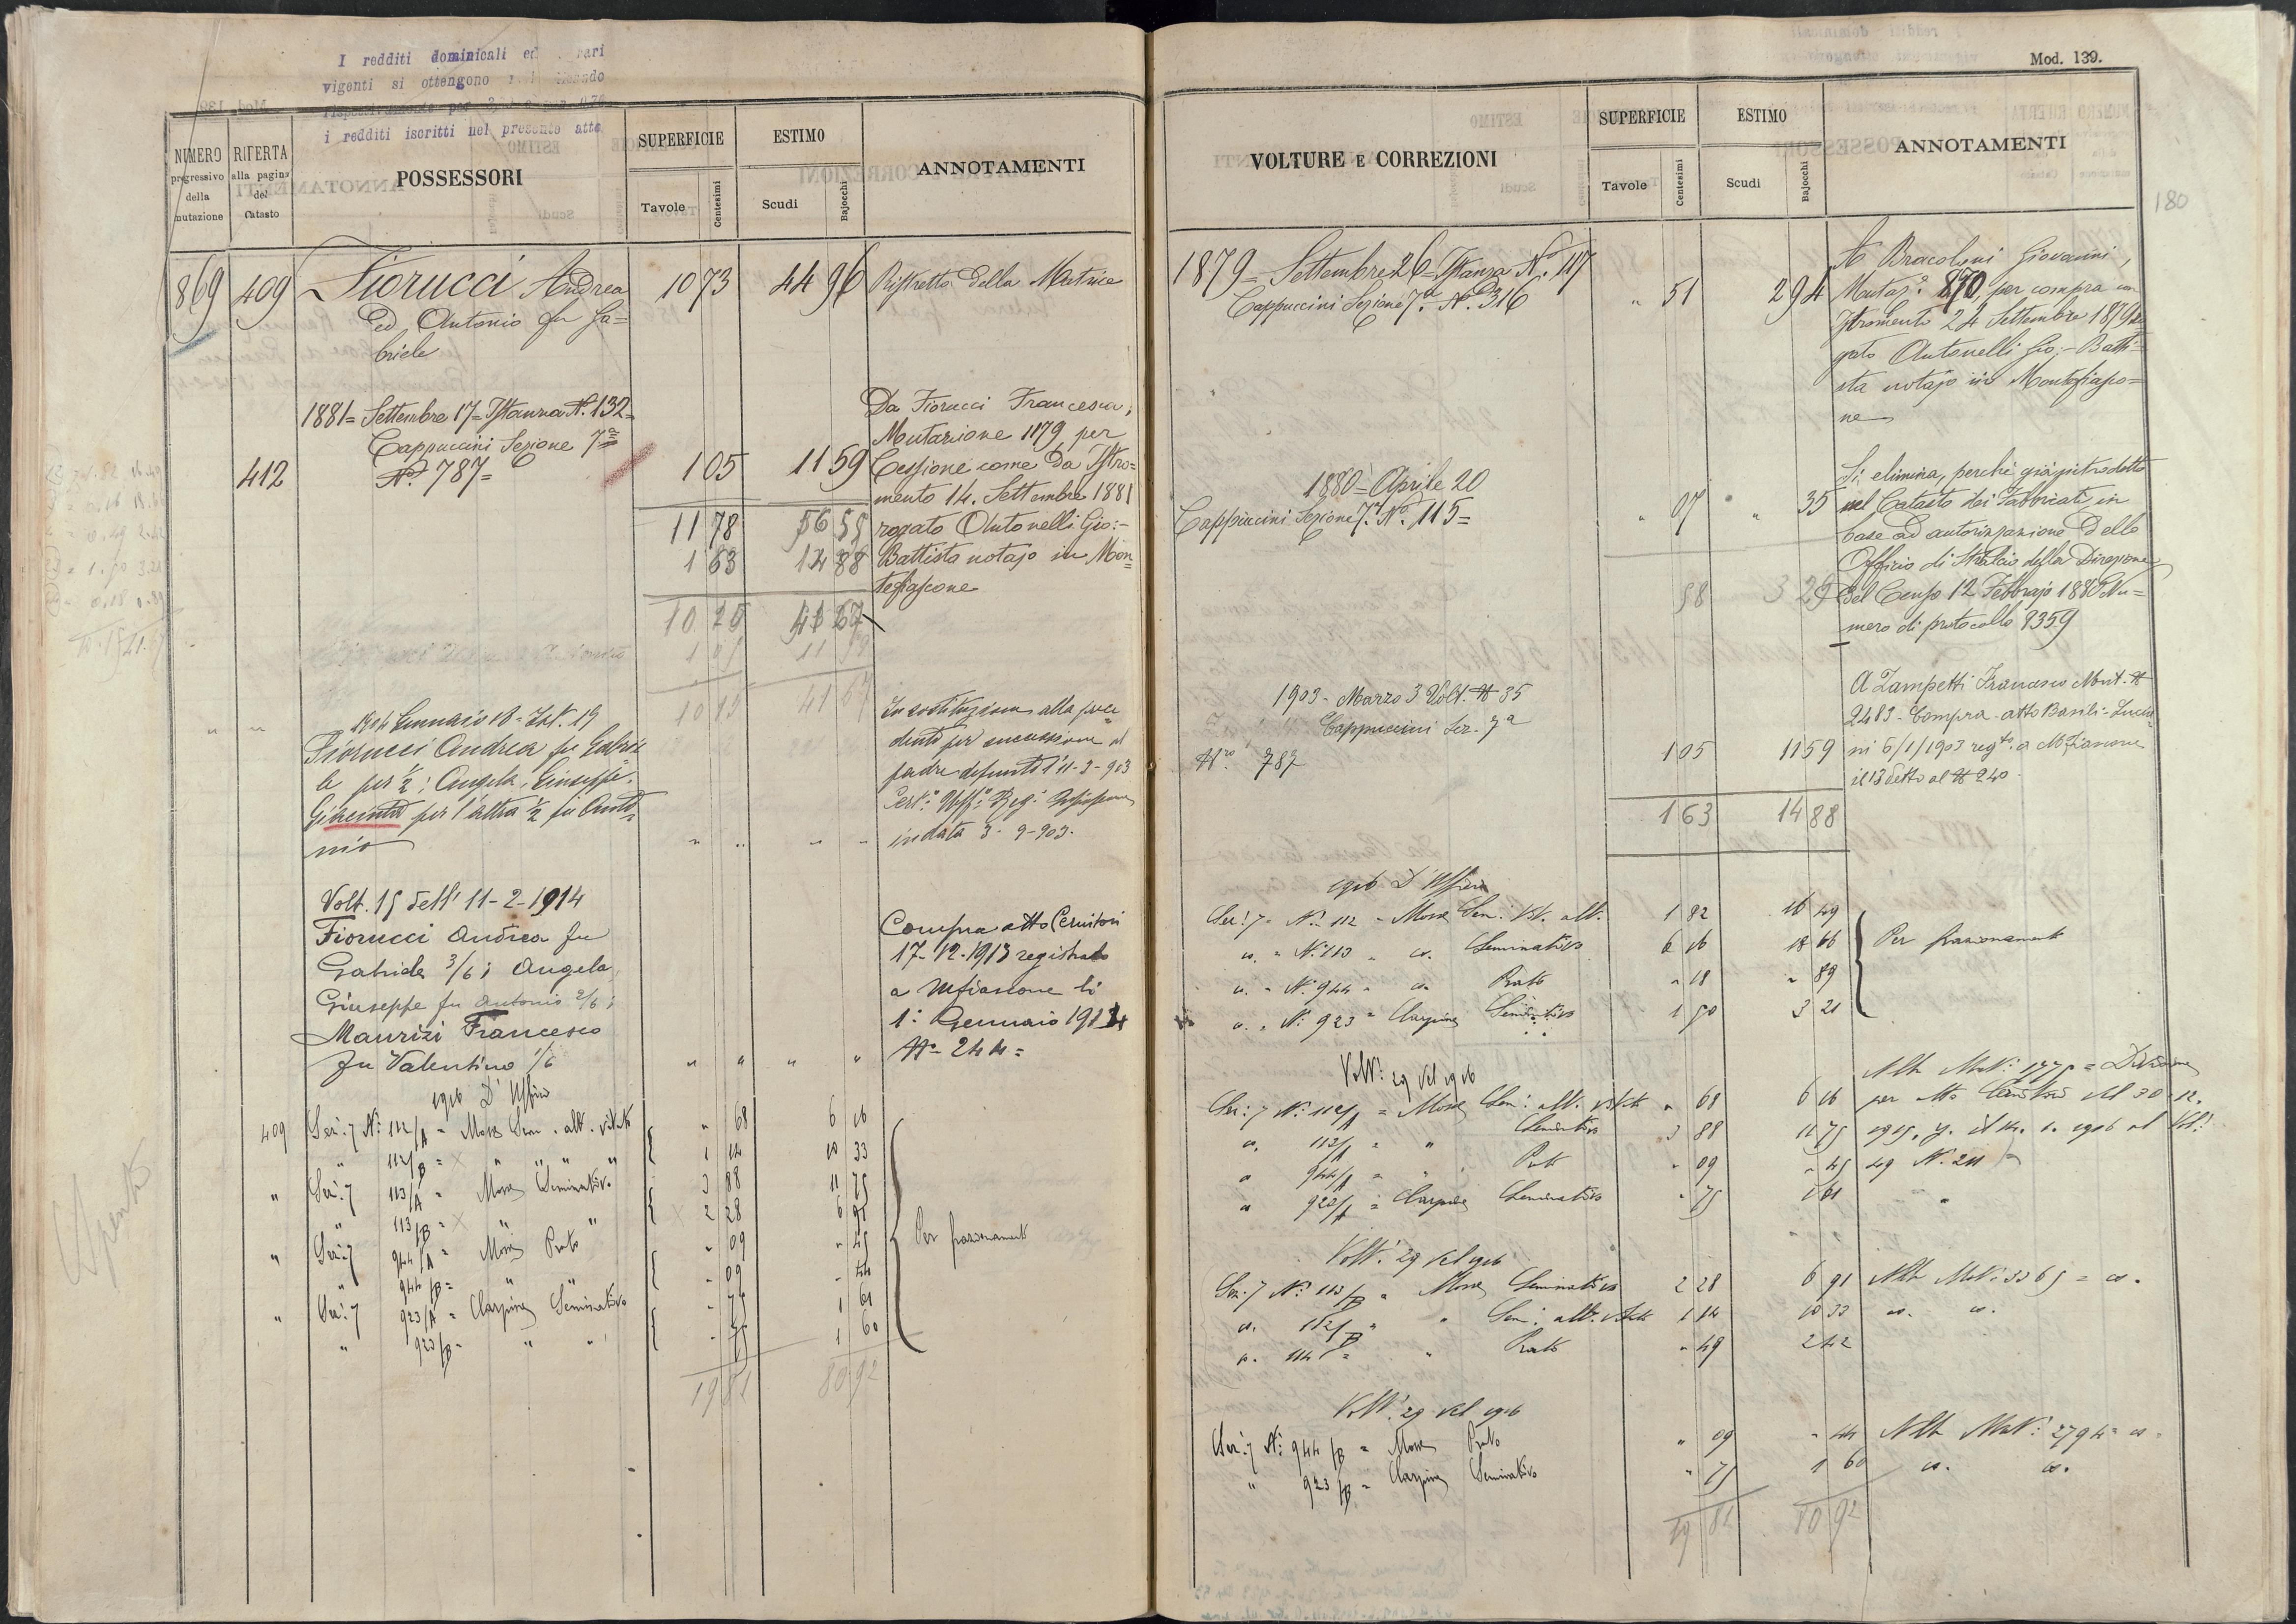 I redditi dominicali ed
vigenti si ottengono
rispettivamente per
i redditi iscritti nel presente atto
NUMERO progressivo della mutazione
RIFERTA alla pagina del Catasto
POSSESSORI
SUPERFICIE
Tavole
Centesimi
ESTIMO
Scudi
Bajocchi
ANNOTAMENTI
869 409 Fiorucci Andrea 10 73 44 96 Ristretto della Matrice
ed Antonio fu Ga=
briele
1881= Settembre 17= Istanza N. 132=
Cappuccini Sezione 7a
412 No. 787= 1 05 11 59
Da Fiorucci Francesco,
Mutazione 1179, per
Cessione come da Istro=
mento 14. Settembre 1881
rogato Antonelli Gio:=
Battista notajo in Mon=
tefiascone
11 78 56 55
1 63 14 88
10 25 41 67
1 05 11 59
10 15 41 67
1904 Gennaio 18 = Ist. 19
Fiorucci Andrea fu Gabrie
le per 1/2; Angela, Giuseppe,
Giacinto per l'altra 1/2 fu Anto=
nio
In sostituzione alla prece
dente per successione al
padre defunto l'11-3-903
in data 3-9-903.
Volt. 15 dell' 11-2-1914
Fiorucci Andrea fu
Gabriele 3/6; Angela,
Giuseppe fu Antonio 2/6;
Maurizi Francesco
fu Valentino 1/6 " " " "
Compra atto Cernitori
17-12-1913 registrato
a Mfiascone li
1: Gennaio 1914
No- 244=
1916 D'Ufficio
409 Sez: 7 N: 112/A = More Sem. alt. vitato " 68 6 16
" 112/B = " " " " 1 14 10 33
" Sez: 7 113/A = More Seminativo 3 88 11 75
" 113/B = " " 2 28 6 91
" Sez: 7 944/A = More Prato " 09 " 45
" 944/B = " " " 09 " 44
" Sez: 7 923/A = Seminativo " 75 1 61
" 923/B = " " " 75 1 60
Per frazionamento
19 81 80 92
Spento
Mod. 139.
180
VOLTURE E CORREZIONI
SUPERFICIE
Tavole
Centesimi
ESTIMO
Scudi
Bajocchi
ANNOTAMENTI
1879= Settembre 26= Istanza No. 117
Cappuccini Sezione 7a. No. 316 " 51 2 94
A Bracoloni Giovanni,
Mutaz.e 870, per compra con
Istromento 24 Settembre 1879 ro
gato Antonelli Gio:= Batti=
sta notajo in Montefiasco=
ne
1880= Aprile 20
Cappuccini Sezione 7a. No. 115= " 07 " 35
Si elimina, perchè già introdotto
nel Catasto dei Fabbricati, in
base ad autorizzazione dello
Officio di Stralcio della Direzione
del Censo 12 Febbrajo 1880 Nu=
mero di protocollo 8359
58 3 29
1903 - Marzo 3 Volt. N 35
Cappuccini Sez. 7a
Nro 787 1 05 11 59
A Zampetti Francesco Mut. N
2483 - Compra - atto Basili - Lucia
ni 6/1/1903 regto. a Mfiascone
il 13 detto al N 240.
1 63 14 88
1916 D'Ufficio
Sez: 7 = N: 112 = More Sem: vit. alt. 1 82 16 49
" N: 113 " Seminativo 6 16 18 66
" N: 944 " Prato " 18 " 89
" N: 923 = Seminativo 1 50 3 21
Per frazionamento
Volt: 29 del 1916
Sez: 7 N: 112/A = More Sem: alt. vitato " 68 6 16
113/A = " Seminativo 3 88 11 75
944/A = " Prato " 09 " 45
923/A = Seminativo " 75 1 61
Alla Mut: 1775 = Divisione
Volt: 29 del 1916
Sez: 7 N: 113/B = More Seminativo 2 28 6 91 Alla Mut: 3365 =
112/B = " Sem: alt. vitato 1 14 10 33
114 = " Prato " 49 2 42
Volt: 29 del 1916
Sez: 7 N: 944/B = More Prato " 09 " 44 Alla Mut: 2794 =
" 923/B = Seminativo " 75 1 60
19 81 80 92